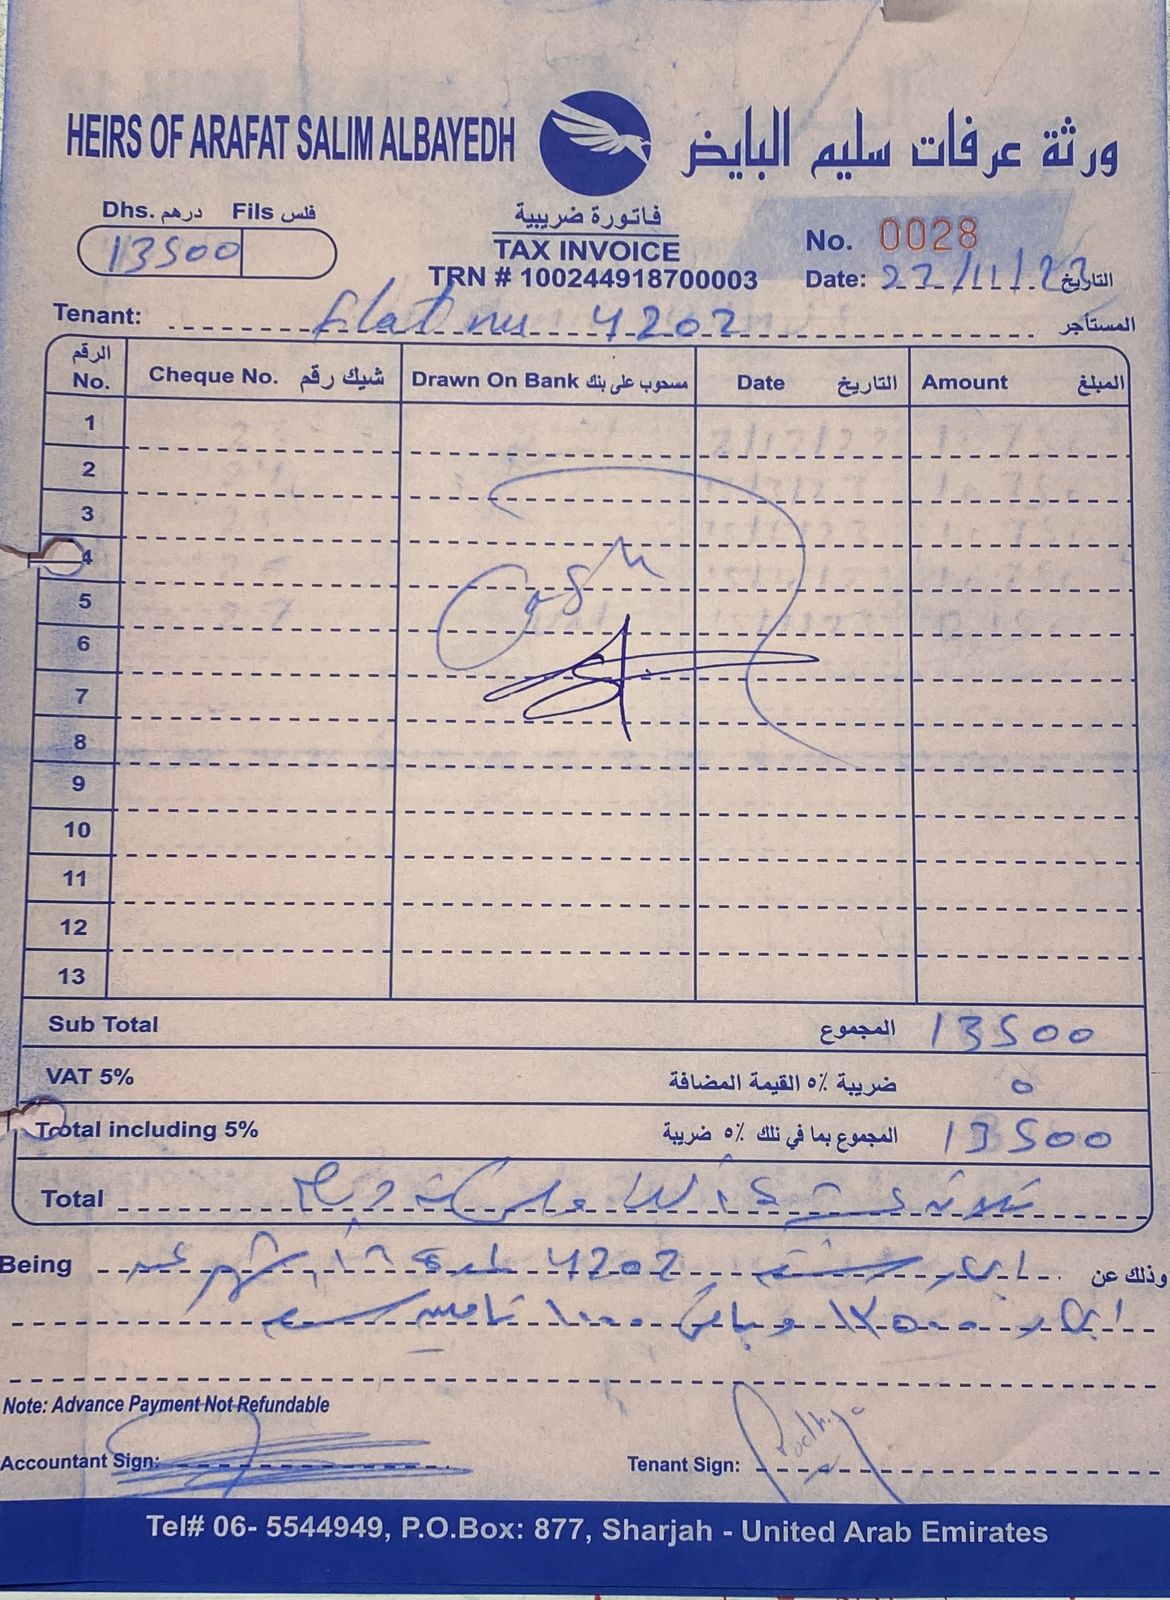 HEIRS OF ARAFAT SALIM ALBAYEDH
ورثة عرفات سليم البايض
Dhs. درهم Fils فلس
13500
فاتورة ضريبية
TAX INVOICE
TRN # 100244918700003
No. 0028
Date: 22/11/22 التاريخ
Tenant: flat nu 4202 المستأجر
الرقم No. Cheque No. شيك رقم Drawn On Bank مسحوب على بنك Date التاريخ Amount المبلغ
1
2
3
4
5
6
7
8
9
10
11
12
13
Cash
Sub Total المجموع 13500
VAT 5% ضريبة ٥٪ القيمة المضافة 0
Total including 5% المجموع بما في ذلك ٥٪ ضريبة 13500
Total ثلاثة عشر
Being 4202 وذلك عن
ايجار ١٣٥٠٠ ١٠٠٠ تامين
Note: Advance Payment Not Refundable
Accountant Sign:
Tenant Sign:
Tel# 06- 5544949, P.O.Box: 877, Sharjah - United Arab Emirates